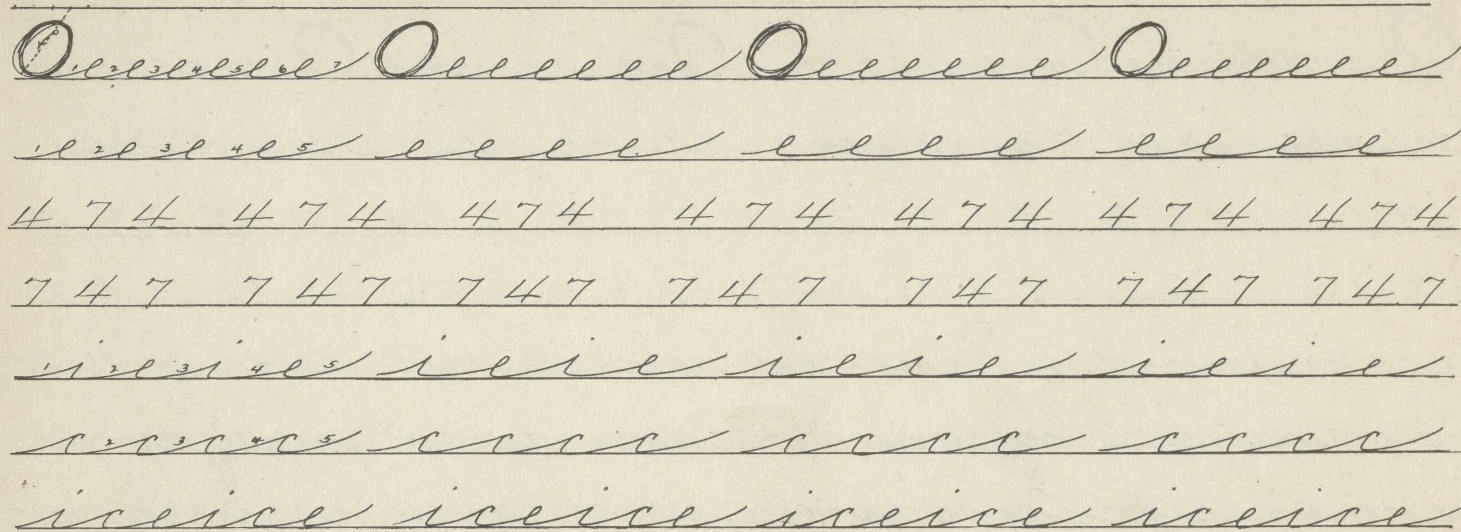 O 1 e 2 e 3 e 4 e 5 e 6 e 7 Oeeeeee Oeeeeee Oeeeeee
1 e 2 e 3 e 4 e 5 eeee eeee eeee
4 7 4 4 7 4 4 7 4 4 7 4 4 7 4 4 7 4 4 7 4
7 4 7 7 4 7 7 4 7 7 4 7 7 4 7 7 4 7 7 4 7
1 i 2 e 3 i 4 e 5 ieie ieie ieie
c 2 c 3 c 4 c 5 cccc cccc cccc
iceice iceice iceice iceice